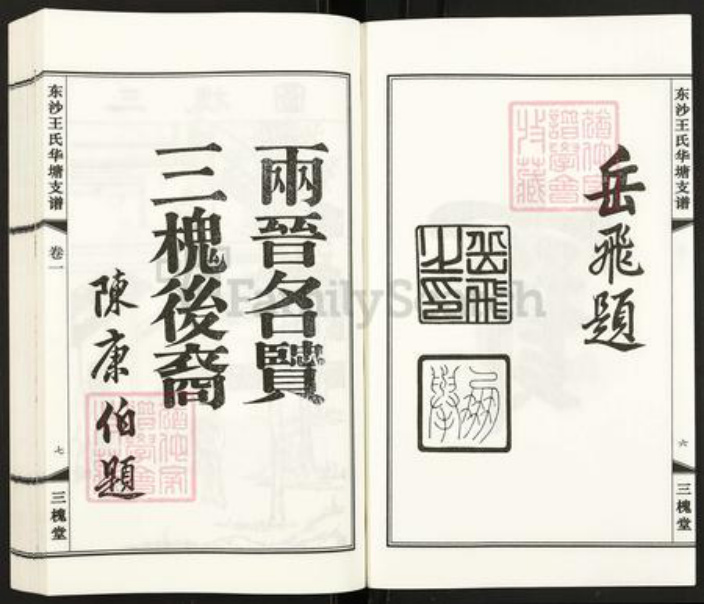 东沙王氏华塘支谱
六
三槐堂
岳飛題
岳飛之印
兩晉名賢
三槐後裔
陳康伯題
东沙王氏华塘支谱
卷一
七
三槐堂
FamilySearch